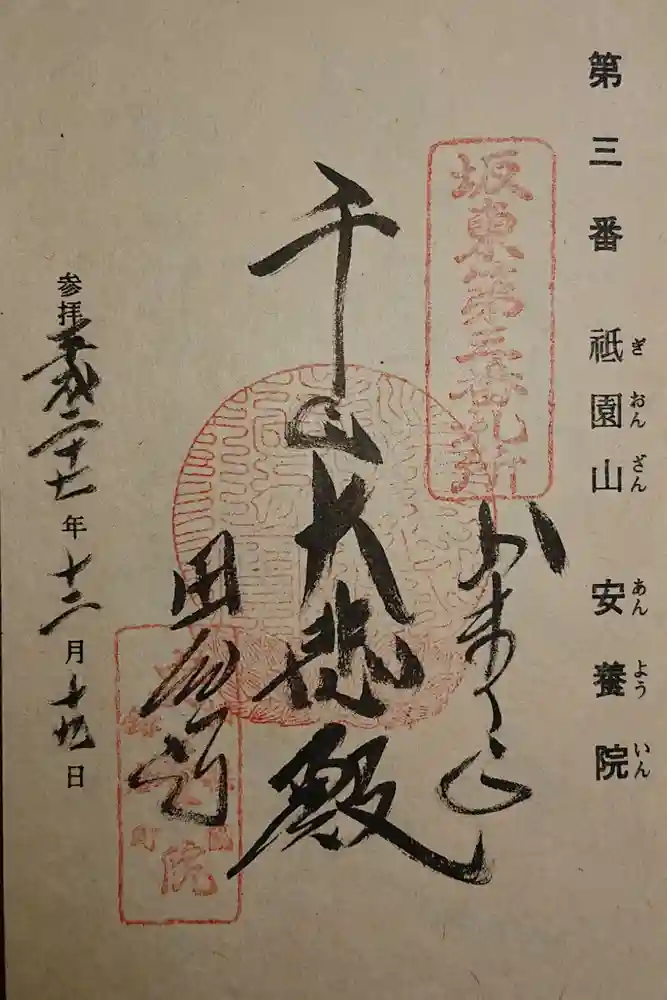 第三番 祇園山 安養院
ぎおんざん あんよういん
坂東第三番札所
かまくら
千手大悲殿
田
院
参拝平成二十七年十二月十九日